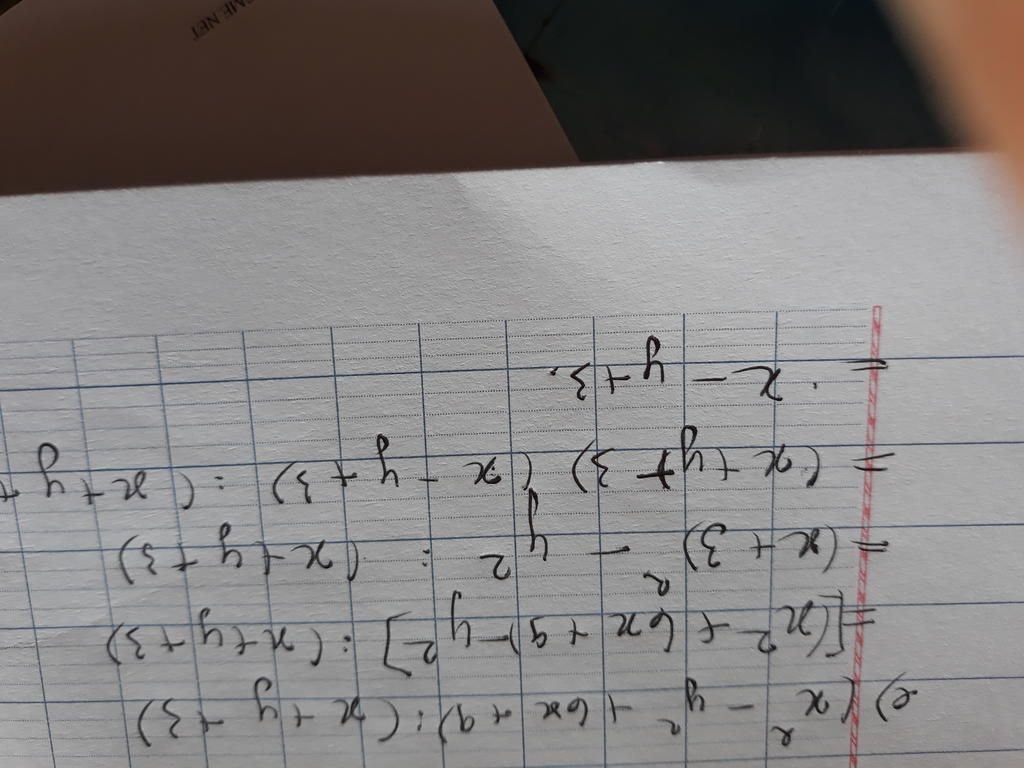 e) (x² - y² + 6x + 9) : (x + y + 3)
= [(x² + 6x + 9) - y²] : (x + y + 3)
= (x + 3)² - y² : (x + y + 3)
= (x + y + 3) (x - y + 3) : (x + y +
= x - y + 3.